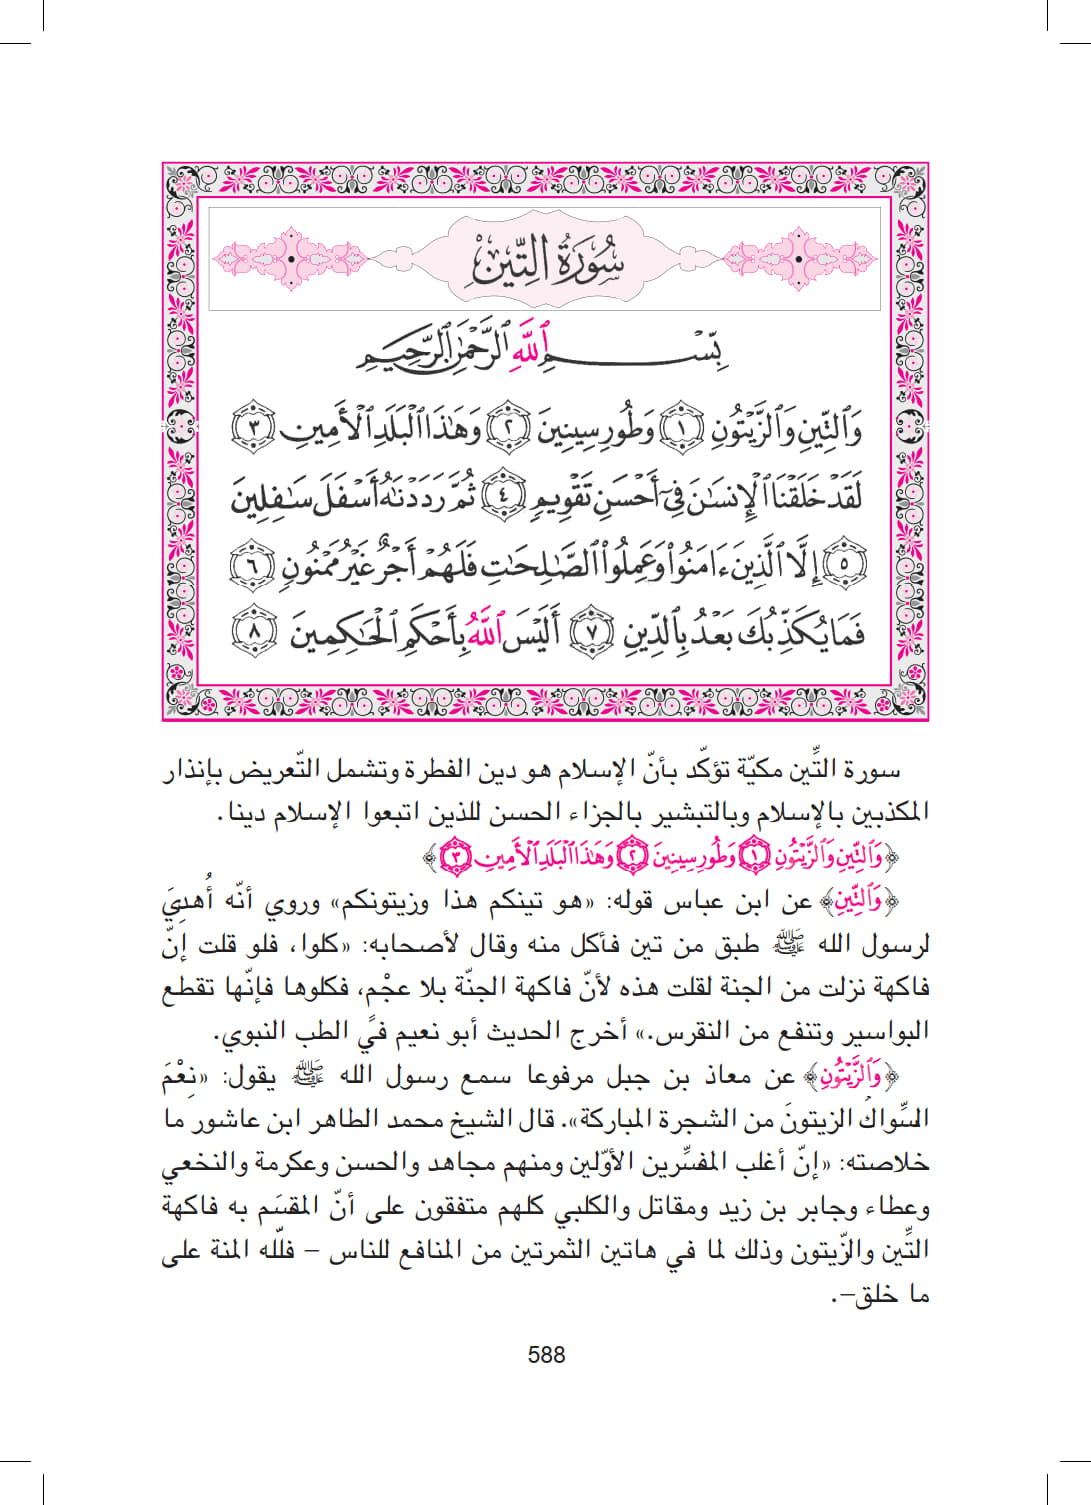 سُورَةُ التِّينِ
بِّسْمِ ٱللَّهِ ٱلرَّحْمَٰنِ ٱلرَّحِيمِ
وَٱلتِّينِ وَٱلزَّيْتُونِ ١ وَطُورِ سِينِينَ ٢ وَهَٰذَا ٱلْبَلَدِ ٱلْأَمِينِ ٣
لَقَدْ خَلَقْنَا ٱلْإِنسَٰنَ فِىٓ أَحْسَنِ تَقْوِيمٍ ٤ ثُمَّ رَدَدْنَٰهُ أَسْفَلَ سَٰفِلِينَ
٥ إِلَّا ٱلَّذِينَ ءَامَنُوا۟ وَعَمِلُوا۟ ٱلصَّٰلِحَٰتِ فَلَهُمْ أَجْرٌ غَيْرُ مَمْنُونٍ ٦
فَمَا يُكَذِّبُكَ بَعْدُ بِٱلدِّينِ ٧ أَلَيْسَ ٱللَّهُ بِأَحْكَمِ ٱلْحَٰكِمِينَ ٨
سورة التِّين مكيّة تؤكّد بأنّ الإسلام هو دين الفطرة وتشمل التّعريض بإنذار
المكذبين بالإسلام وبالتبشير بالجزاء الحسن للذين اتبعوا الإسلام دينا.
﴿وَٱلتِّينِ وَٱلزَّيْتُونِ ١ وَطُورِ سِينِينَ ٢ وَهَٰذَا ٱلْبَلَدِ ٱلْأَمِينِ ٣﴾
﴿وَٱلتِّينِ﴾ عن ابن عباس قوله: «هو تينكم هذا وزيتونكم» وروي أنّه أُهدِيَ
لرسول الله ﷺ طبق من تين فأكل منه وقال لأصحابه: «كلوا، فلو قلت إنّ
فاكهة نزلت من الجنة لقلت هذه لأنّ فاكهة الجنّة بلا عجْمٍ، فكلوها فإنّها تقطع
البواسير وتنفع من النقرس.» أخرج الحديث أبو نعيم في الطب النبوي.
﴿وَٱلزَّيْتُونِ﴾ عن معاذ بن جبل مرفوعا سمع رسول الله ﷺ يقول: «نِعْمَ
السِّواكُ الزيتونَ من الشجرة المباركة». قال الشيخ محمد الطاهر ابن عاشور ما
خلاصته: «إنّ أغلب المفسِّرين الأوّلين ومنهم مجاهد والحسن وعكرمة والنخعي
وعطاء وجابر بن زيد ومقاتل والكلبي كلهم متفقون على أنّ المقسَم به فاكهة
التِّين والزّيتون وذلك لما في هاتين الثمرتين من المنافع للناس – فللّه المنة على
ما خلق–.
588